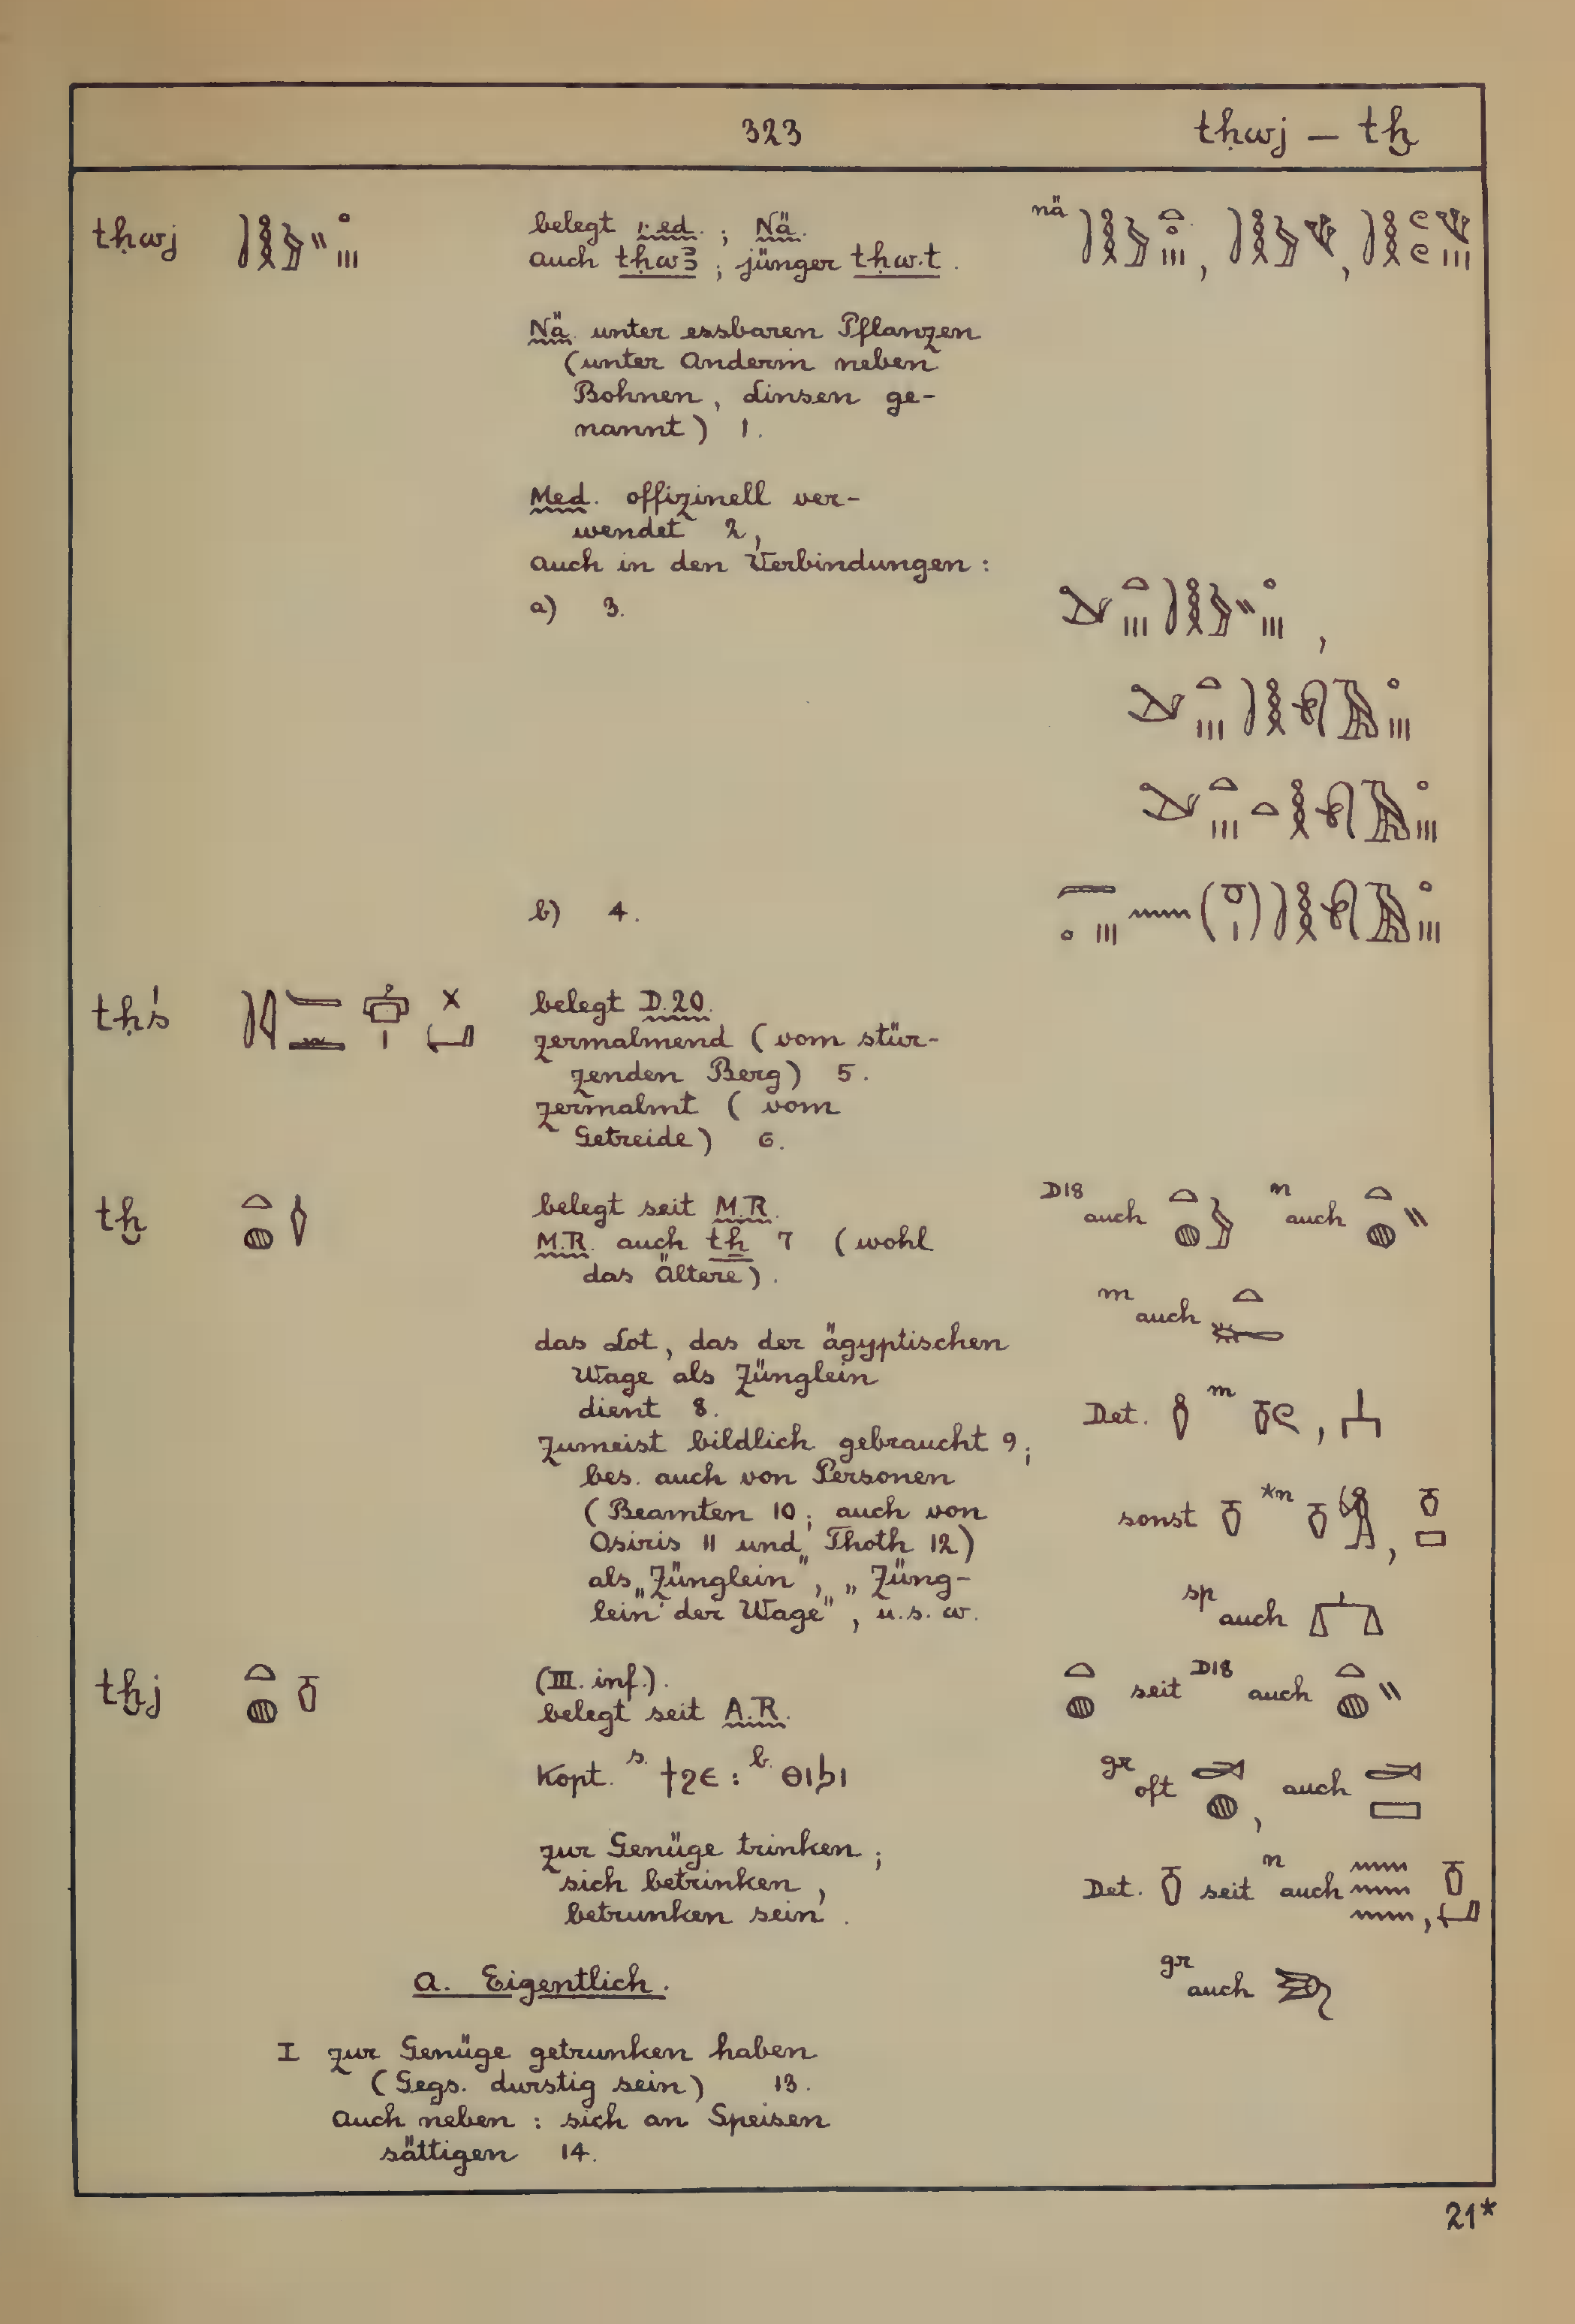 323 tḥwj – tḫ
tḥwj belegt Med.; Nä. nä
auch tḥwꜣ; jünger tḥw.t. , ,
Nä. unter essbaren Pflanzen
(unter Anderm neben
Bohnen, Linsen ge-
nannt) 1.
Med. offizinell ver-
wendet 2,
auch in den Verbindungen:
a) 3. ,
b) 4. ( )
tḥś belegt D.20.
zermalmend (vom stür-
zenden Berg) 5.
zermalmt (vom
Getreide) 6.
tḫ belegt seit M.R. D18 auch n auch
M.R. auch tẖ 7 (wohl
das Ältere). m auch
das Lot, das der ägyptischen
Wage als Zünglein
dient 8. Det. m ,
Zumeist bildlich gebraucht 9;
bes. auch von Personen
(Beamten 10; auch von sonst *n ,
Osiris 11 und Thoth 12)
als „Zünglein", „Züng-
lein der Wage", u.s.w. sp auch
tḫj (III. inf.). seit D18 auch
belegt seit A.R.
Kopt. s. ϯϩⲉ : b. ⲑⲓϧⲓ gr oft , auch
zur Genüge trinken;
sich betrinken, Det. seit n auch ,
betrunken sein.
a. Eigentlich. gr auch
I zur Genüge getrunken haben
(Gegs. durstig sein) 13.
Auch neben : sich an Speisen
sättigen 14.
21*